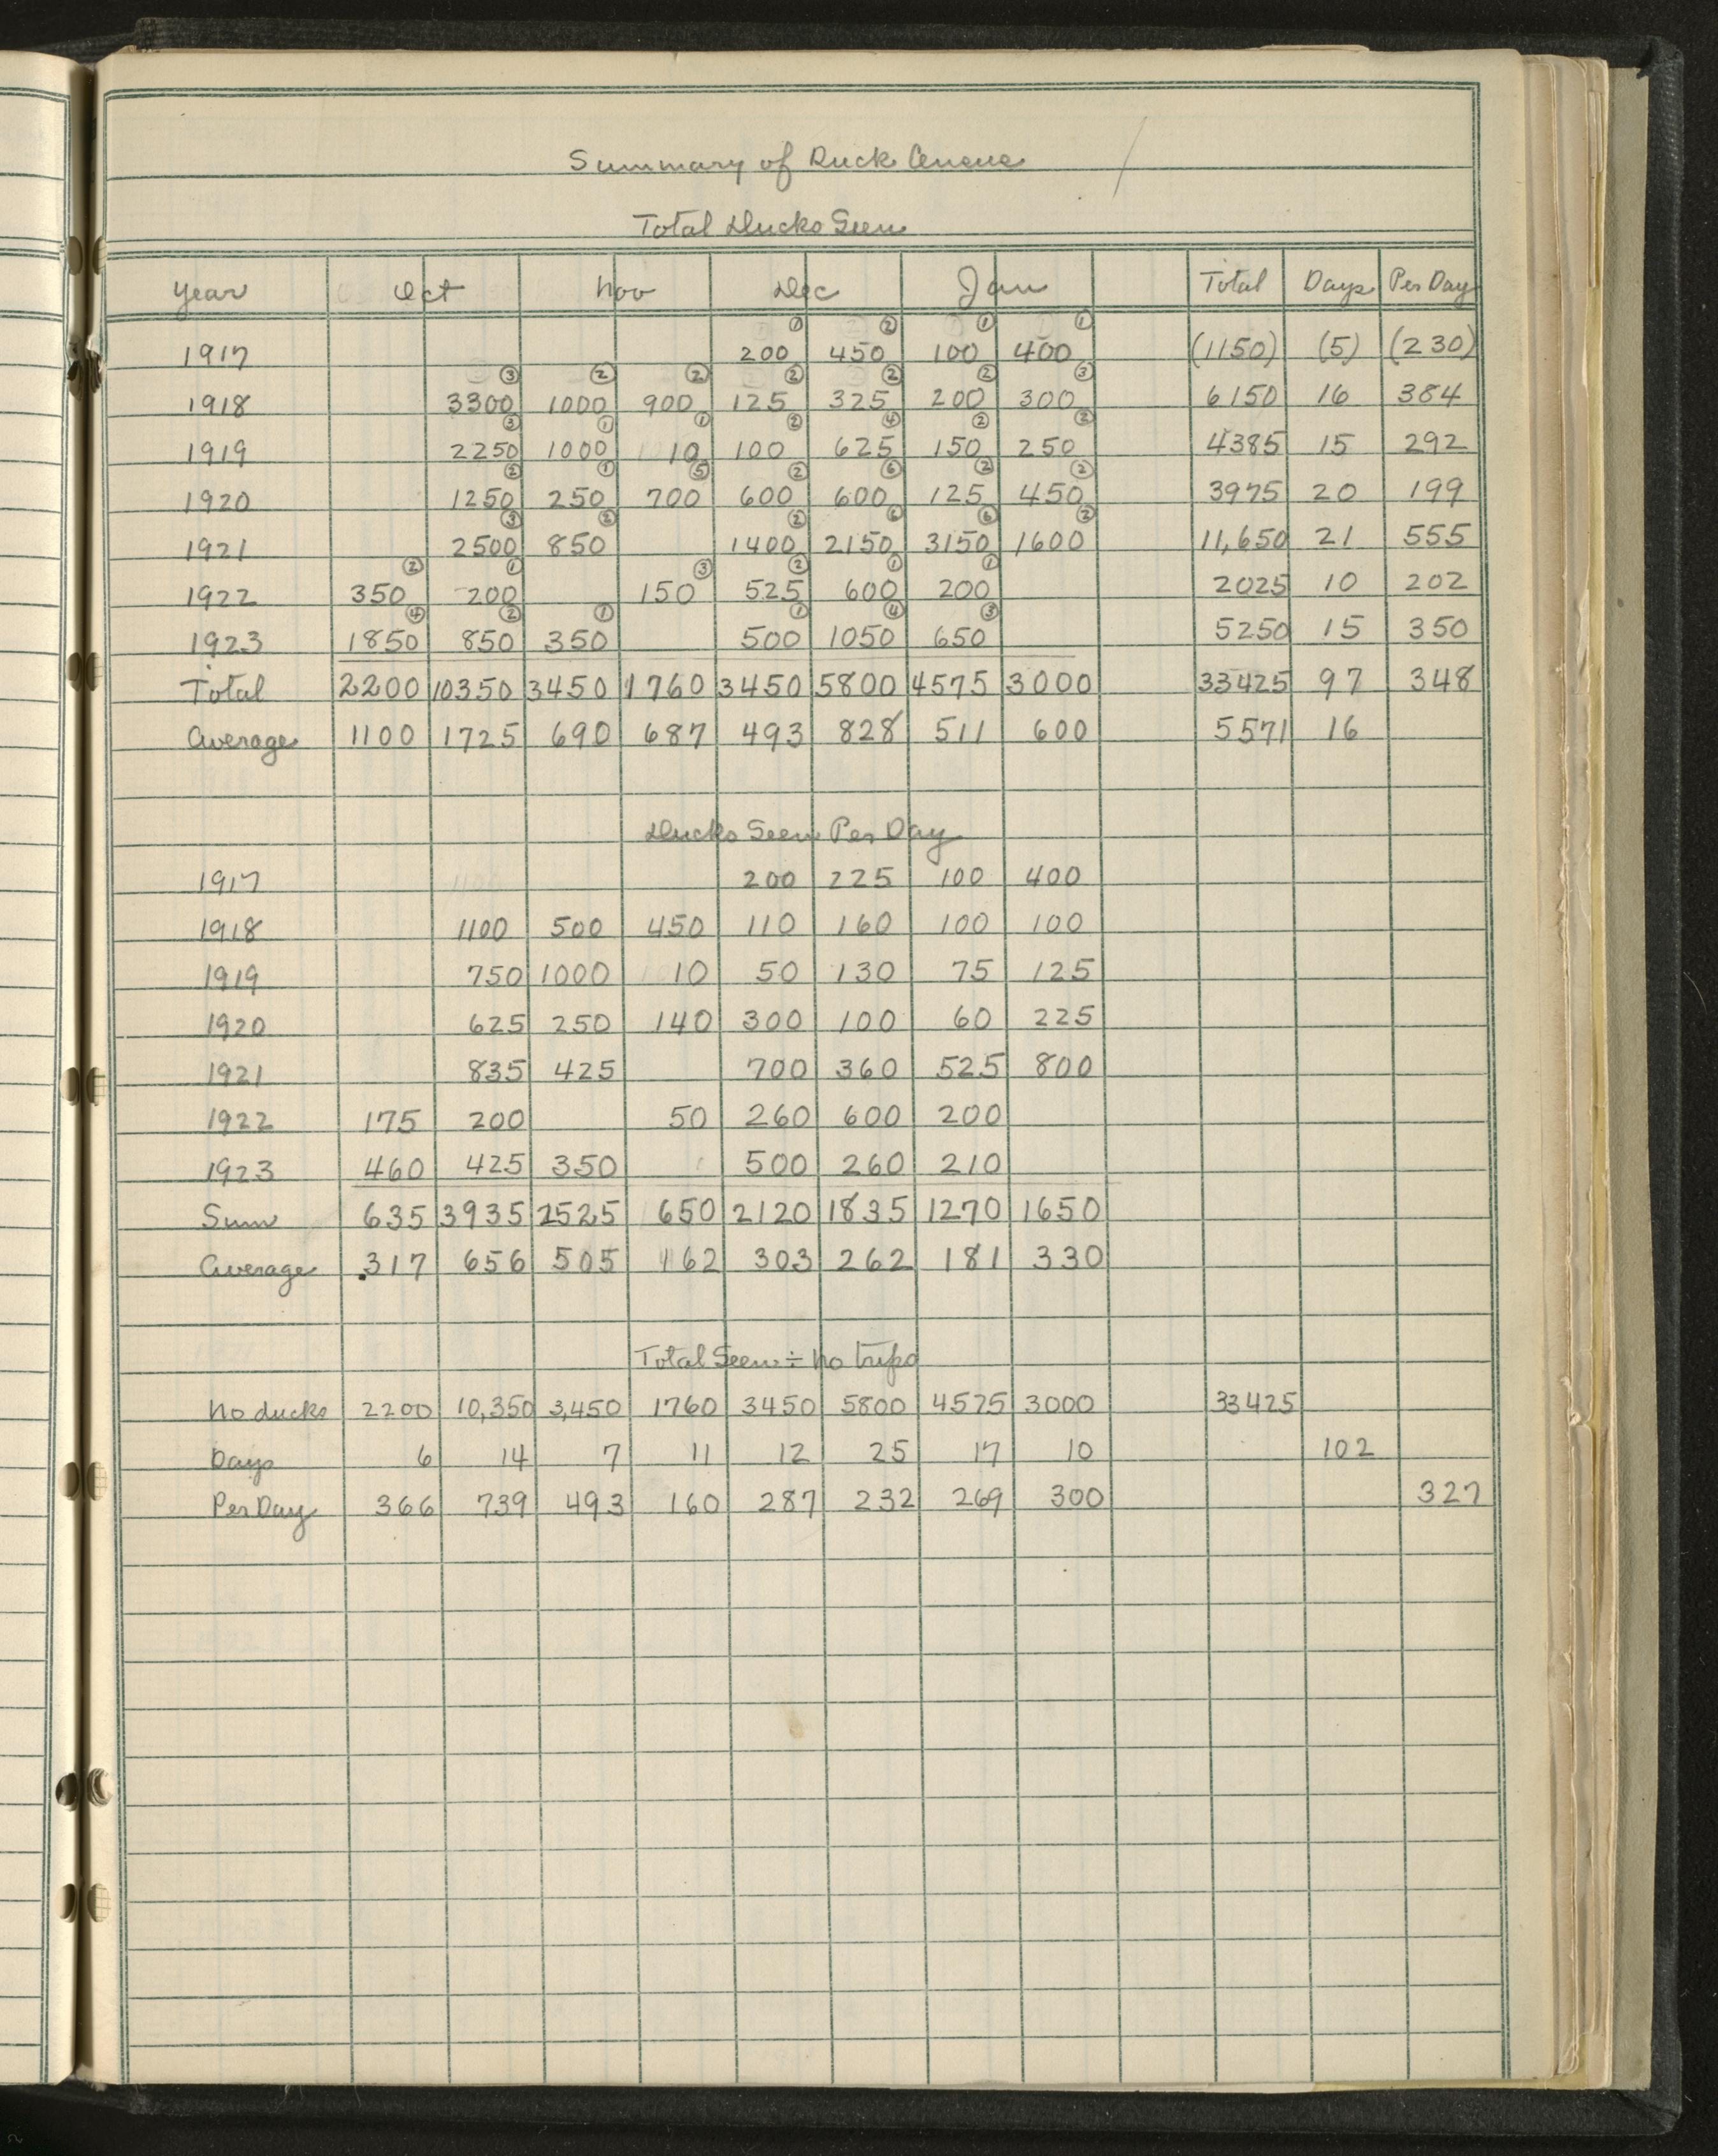 Summary of Duck Census
Total Ducks Seen
Year Oct Nov Dec Jan Total Days Per Day
① ② ① ①
1917 200 450 100 400 (1150) (5) (230)
③ ② ② ② ② ② ③
1918 3300 1000 900 125 325 200 300 6150 16 384
③ ① ① ② ④ ② ②
1919 2250 1000 10 100 625 150 250 4385 15 292
② ① ⑤ ② ⑥ ② ②
1920 1250 250 700 600 600 125 450 3975 20 199
③ ② ② ⑥ ⑥ ②
1921 2500 850 1400 2150 3150 1600 11,650 21 555
② ① ③ ② ① ①
1922 350 200 150 525 600 200 2025 10 202
④ ② ① ① ④ ③
1923 1850 850 350 500 1050 650 5250 15 350
Total 2200 10350 3450 1760 3450 5800 4575 3000 33425 97 348
Average 1100 1725 690 687 493 828 511 600 5571 16
Ducks Seen Per Day
1917 200 225 100 400
1918 1100 500 450 110 160 100 100
1919 750 1000 10 50 130 75 125
1920 625 250 140 300 100 60 225
1921 835 425 700 360 525 800
1922 175 200 50 260 600 200
1923 460 425 350 500 260 210
Sum 635 3935 2525 650 2120 1835 1270 1650
Average 317 656 505 162 303 262 181 330
Total Seen ÷ No trips
No ducks 2200 10,350 3,450 1760 3450 5800 4575 3000 33425
Days 6 14 7 11 12 25 17 10 102
Per Day 366 739 493 160 287 232 269 300 327